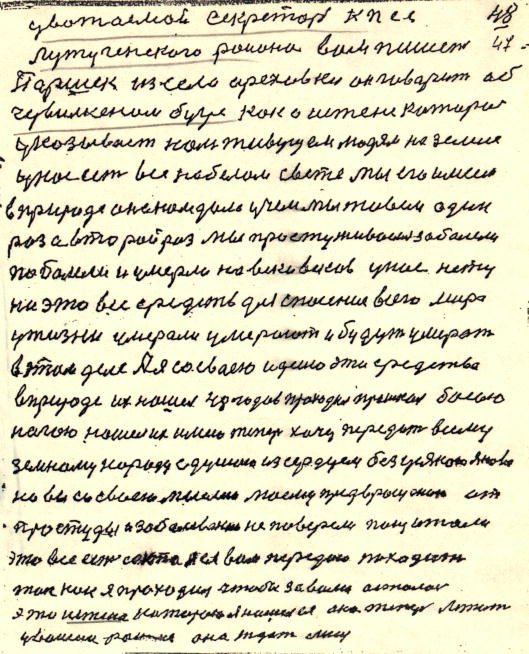 уважаемой секретар кпсс 48
Лутугенского раиона вам пишет 47
Паршек из села ореховки он говарит об
чевилкеном бугре как о истене катораю
указывает нам живущем людям на земле
у нас ест все на белом свете мы его имеем
в природе она нам дала и чем мы живем один
раз а второй раз мы простуживаемся забалели
поболели и умерли на веки веков у нас нету
на это все средств для спасения всего мира
у жизни умерали умерают и будут умерат
в этом деле А я со сваею идеею эти средства
в природе их нашел 48 годов проходил прошкал босою
ногою нашел их имею тепер хачу передат всему
земному народу с душою и сердцем без усякого
но вы со сваею мыслию моему от
простуды и забалевания не поверели пощитали
это все ест а я вам передаю походит
так как я проходил чтобы за вами осталас
это истена катораю я нашел она тепер лежит
у вашем раионе она ждет